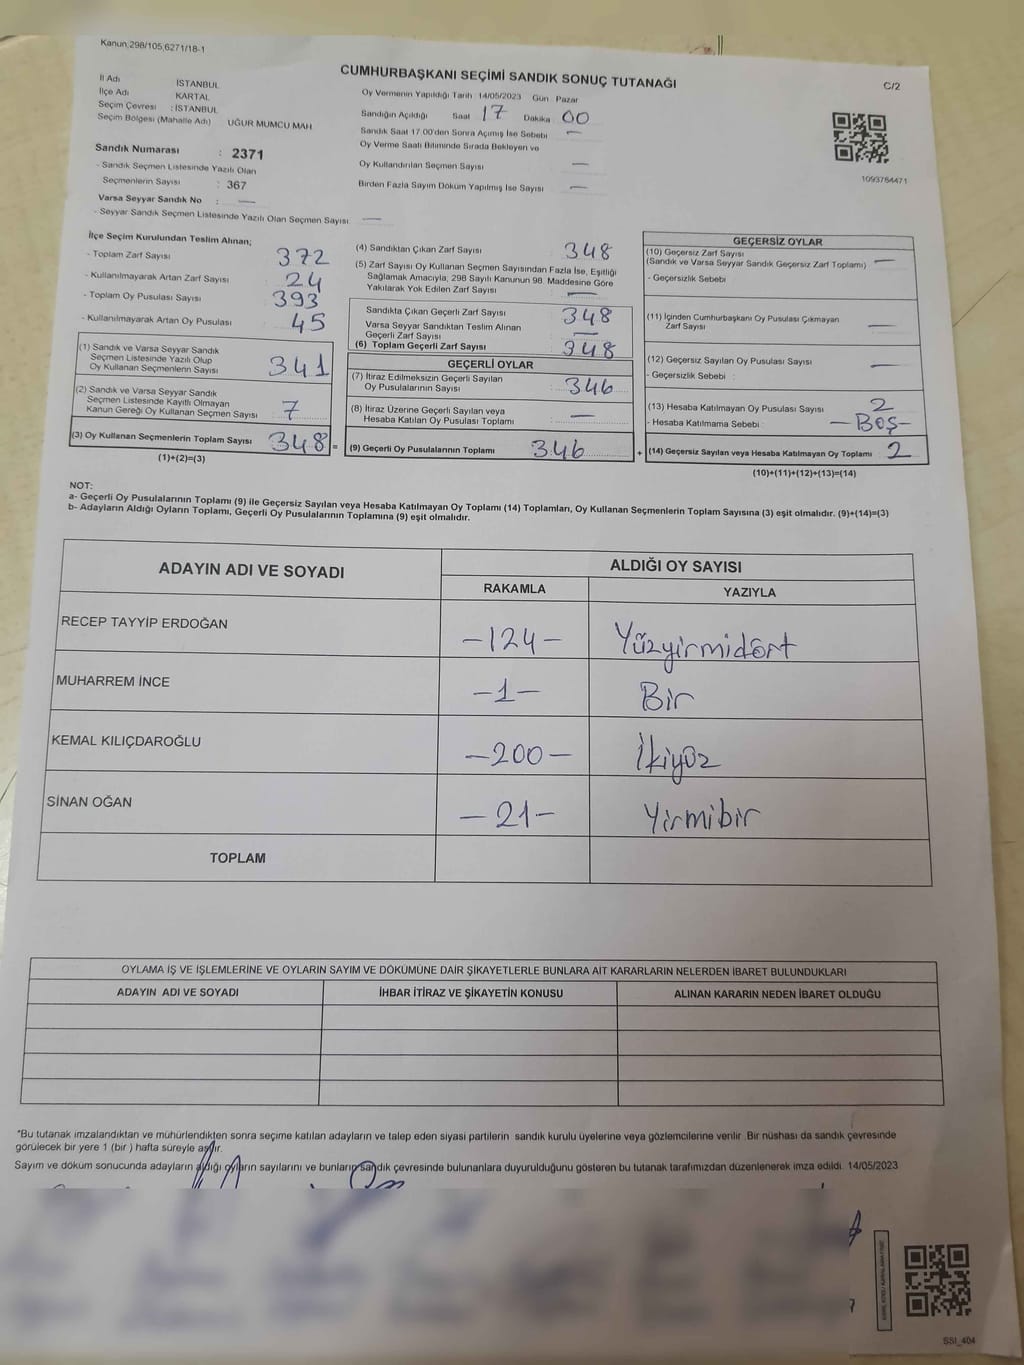 Kanun,298/105,6271/18-1
CUMHURBAŞKANI SEÇİMİ SANDIK SONUÇ TUTANAĞI
C/2
İl Adı İSTANBUL
İlçe Adı KARTAL
Seçim Çevresi : İSTANBUL
Seçim Bölgesi (Mahalle Adı) UĞUR MUMCU MAH
Sandık Numarası : 2371
- Sandık Seçmen Listesinde Yazılı Olan
Seçmenlerin Sayısı : 367
Varsa Seyyar Sandık No : —
- Seyyar Sandık Seçmen Listesinde Yazılı Olan Seçmen Sayısı: —
Oy Vermenin Yapıldığı Tarih :14/05/2023 Gün Pazar
Sandığın Açıldığı Saat 17 Dakika 00
Sandık Saat 17.00'den Sonra Açımış İse Sebebi —
Oy Verme Saati Bitiminde Sırada Bekleyen ve
Oy Kullandırılan Seçmen Sayısı —
Birden Fazla Sayım Döküm Yapılmış İse Sayısı —
1093764471
İlçe Seçim Kurulundan Teslim Alınan;
- Toplam Zarf Sayısı 372
- Kullanılmayarak Artan Zarf Sayısı 24
- Toplam Oy Pusulası Sayısı 393
- Kullanılmayarak Artan Oy Pusulası 45
(1) Sandık ve Varsa Seyyar Sandık
Seçmen Listesinde Yazılı Olup
Oy Kullanan Seçmenlerin Sayısı 341
(2) Sandık ve Varsa Seyyar Sandık
Seçmen Listesinde Kayıtlı Olmayan
Kanun Gereği Oy Kullanan Seçmen Sayısı 7
(3) Oy Kullanan Seçmenlerin Toplam Sayısı 348 =
(1)+(2)=(3)
(4) Sandıktan Çıkan Zarf Sayısı 348
(5) Zarf Sayısı Oy Kullanan Seçmen Sayısından Fazla İse, Eşitliği
Sağlamak Amacıyla, 298 Sayılı Kanunun 98. Maddesine Göre
Yakılarak Yok Edilen Zarf Sayısı —
Sandıkta Çıkan Geçerli Zarf Sayısı 348
Varsa Seyyar Sandıktan Teslim Alınan
Geçerli Zarf Sayısı —
(6) Toplam Geçerli Zarf Sayısı 348
GEÇERLİ OYLAR
(7) İtiraz Edilmeksizin Geçerli Sayılan
Oy Pusulalarının Sayısı : 346
(8) İtiraz Üzerine Geçerli Sayılan veya
Hesaba Katılan Oy Pusulası Toplamı : —
(9) Geçerli Oy Pusulalarının Toplamı 346 +
GEÇERSİZ OYLAR
(10) Geçersiz Zarf Sayısı
(Sandık ve Varsa Seyyar Sandık Geçersiz Zarf Toplamı) —
- Geçersizlik Sebebi
(11) İçinden Cumhurbaşkanı Oy Pusulası Çıkmayan
Zarf Sayısı —
(12) Geçersiz Sayılan Oy Pusulası Sayısı —
- Geçersizlik Sebebi :
(13) Hesaba Katılmayan Oy Pusulası Sayısı 2
- Hesaba Katılmama Sebebi : —Boş—
(14) Geçersiz Sayılan veya Hesaba Katılmayan Oy Toplamı : 2
(10)+(11)+(12)+(13)=(14)
NOT:
a- Geçerli Oy Pusulalarının Toplamı (9) ile Geçersiz Sayılan veya Hesaba Katılmayan Oy Toplamı (14) Toplamları, Oy Kullanan Seçmenlerin Toplam Sayısına (3) eşit olmalıdır. (9)+(14)=(3)
b- Adayların Aldığı Oyların Toplamı, Geçerli Oy Pusulalarının Toplamına (9) eşit olmalıdır.
ADAYIN ADI VE SOYADI
ALDIĞI OY SAYISI
RAKAMLA YAZIYLA
RECEP TAYYİP ERDOĞAN —124— Yüzyirmidört
MUHARREM İNCE —1— Bir
KEMAL KILIÇDAROĞLU —200— İkiyüz
SİNAN OĞAN —21— Yirmibir
TOPLAM
OYLAMA İŞ VE İŞLEMLERİNE VE OYLARIN SAYIM VE DÖKÜMÜNE DAİR ŞİKAYETLERLE BUNLARA AİT KARARLARIN NELERDEN İBARET BULUNDUKLARI
ADAYIN ADI VE SOYADI İHBAR İTİRAZ VE ŞİKAYETİN KONUSU ALINAN KARARIN NEDEN İBARET OLDUĞU
*Bu tutanak imzalandıktan ve mühürlendikten sonra seçime katılan adayların ve talep eden siyasi partilerin sandık kurulu üyelerine veya gözlemcilerine verilir .Bir nüshası da sandık çevresinde
görülecek bir yere 1 (bir ) hafta süreyle asılır.
Sayım ve döküm sonucunda adayların aldığı oyların sayılarını ve bunların sandık çevresinde bulunanlara duyurulduğunu gösteren bu tutanak tarafımızdan düzenlenerek imza edildi. 14/05/2023
SSI_404